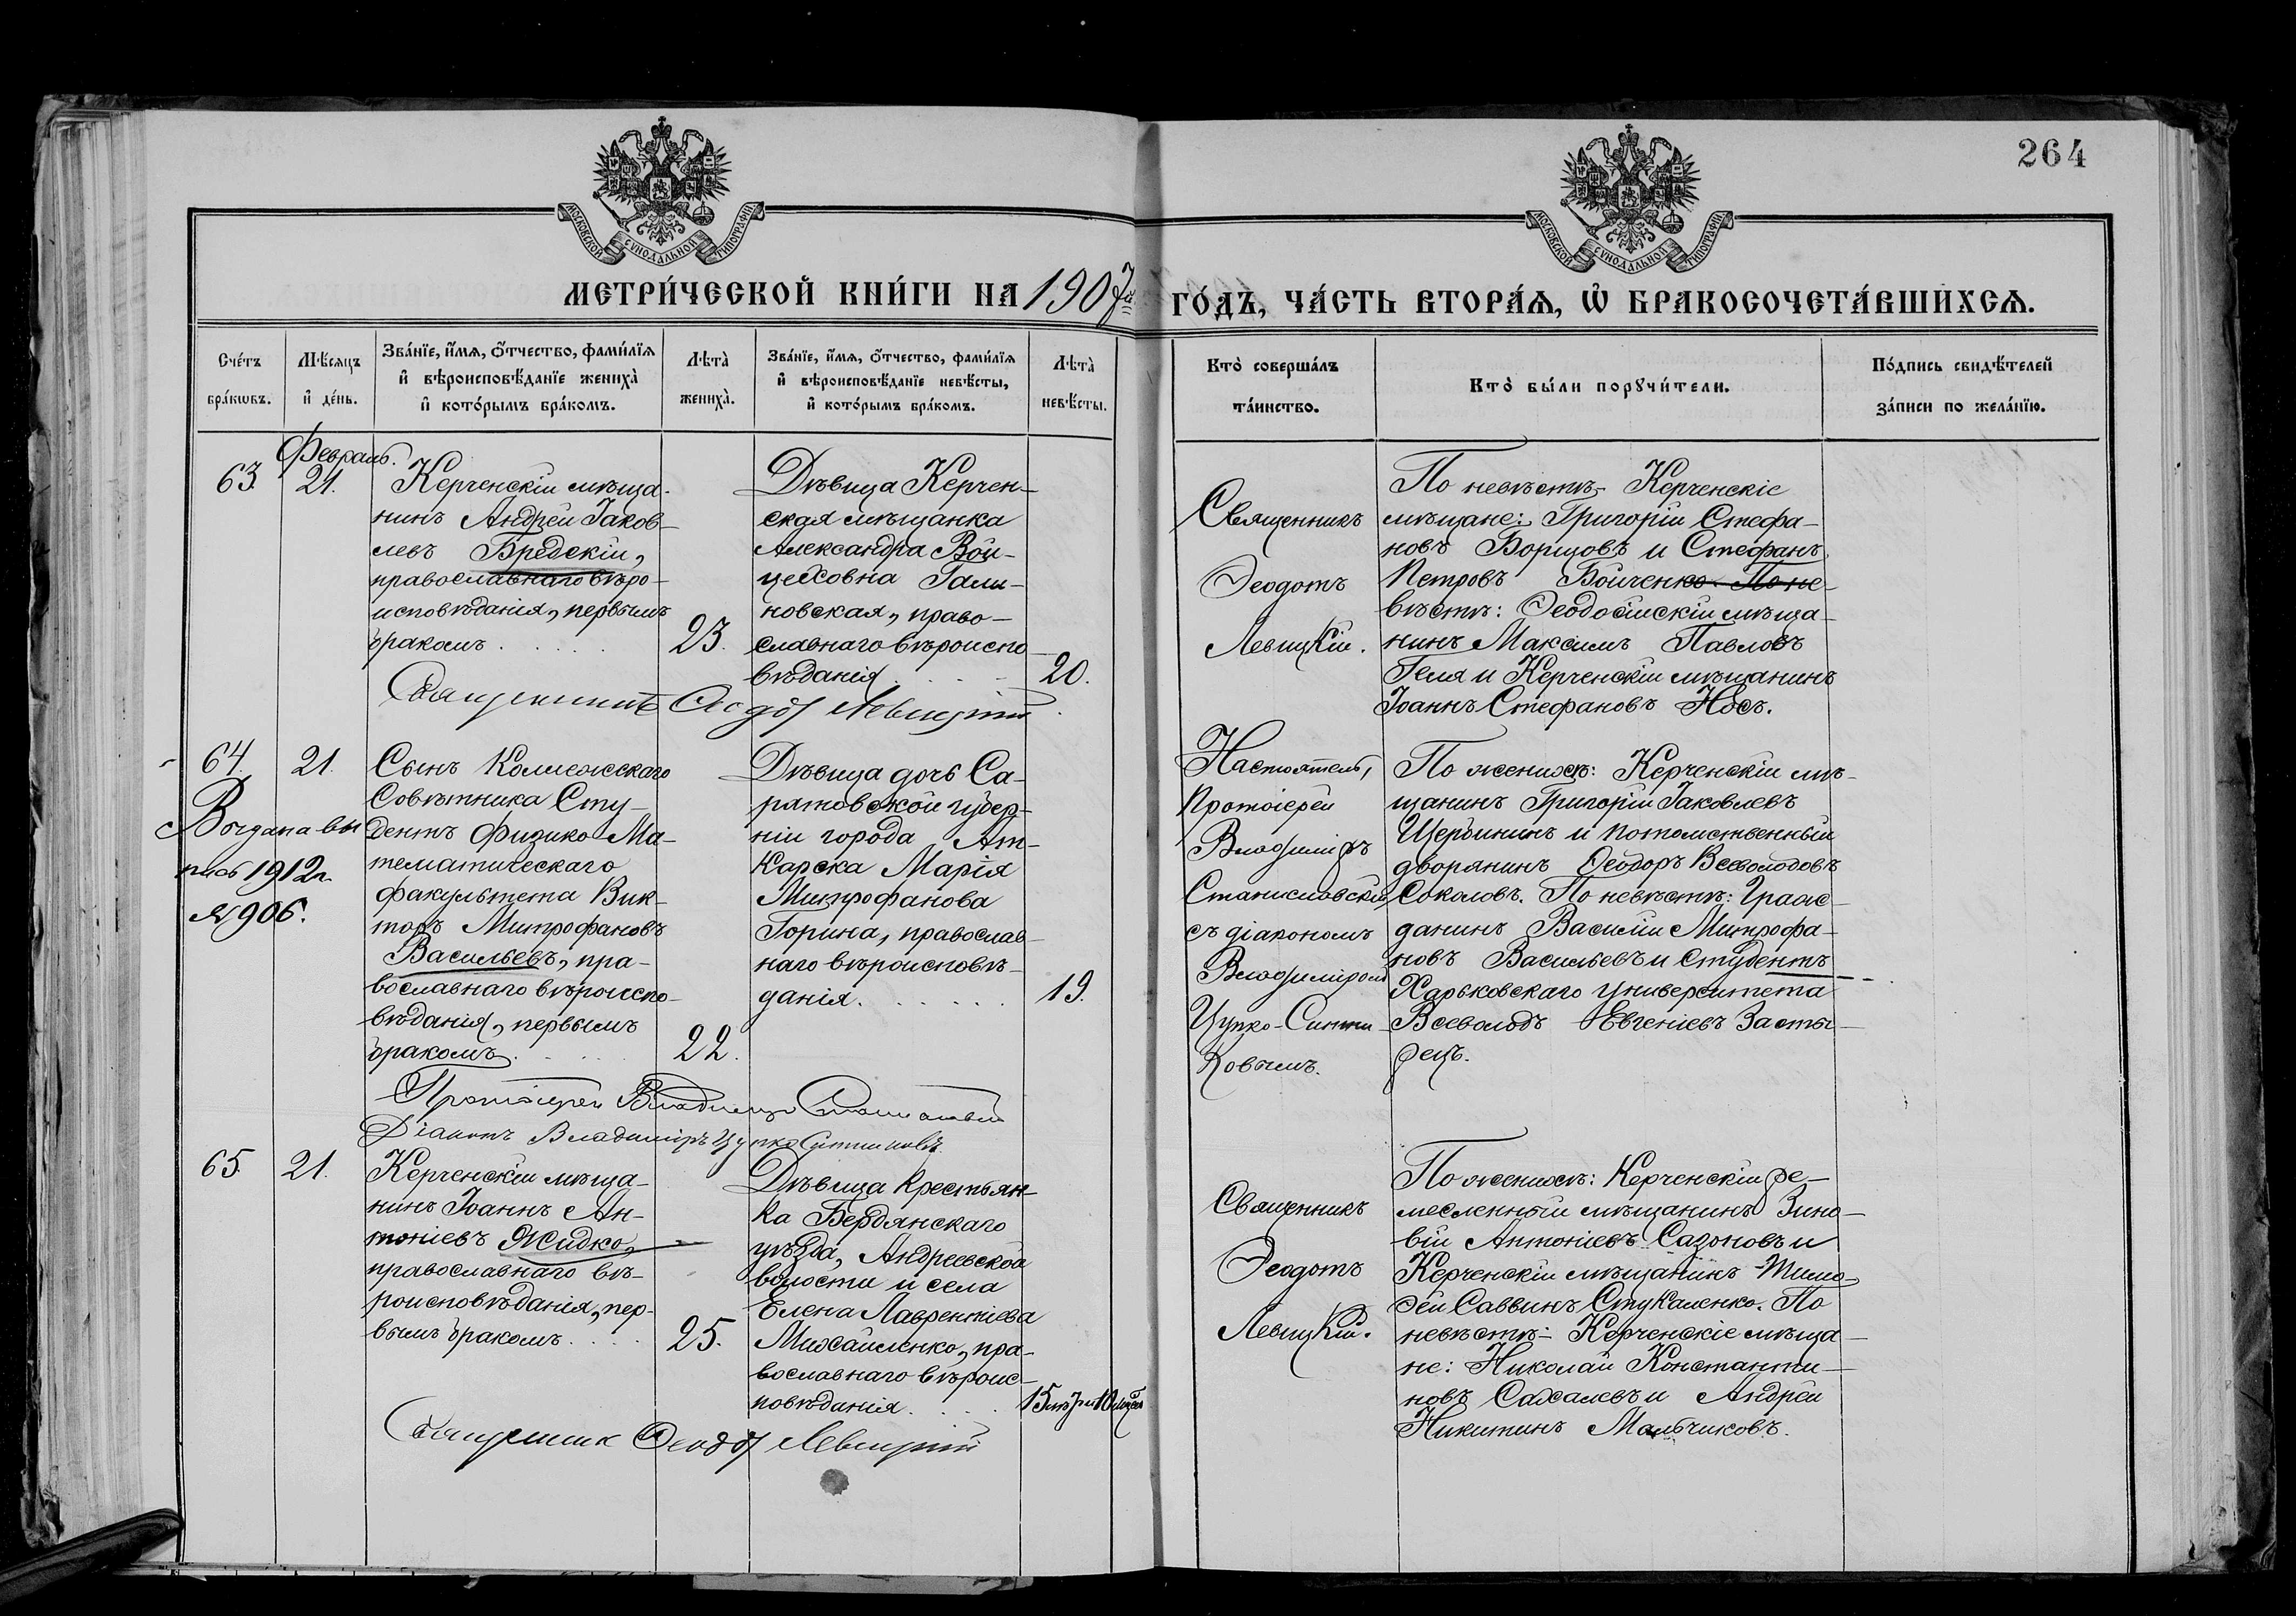 264
МОСКОВСКОЙ СѴНОДАЛЬНОЙ ТИПОГРАФІИ
МОСКОВСКОЙ СѴНОДАЛЬНОЙ ТИПОГРАФІИ
МЕТРИ́ЧЕСКОЙ КНИ́ГИ НА 1907й ГО́ДЪ, ЧА́СТЬ ВТОРА́Ѧ, Ѽ БРАКОСОЧЕТА́ВШИХСѦ.
Сче́тъ
бра́кѡвъ.
Мѣ́сяцъ
и҆ де́нь.
Зва́нїе, и҆́мѧ, ѻ҆́тчество, фами́лїѧ
и҆ вѣроисповѣ́данїе жениха̀
и҆ кото́рымъ бра́комъ.
Лѣта̀
жениха̀.
Зва́нїе, и҆́мѧ, ѻ҆́тчество, фами́лїѧ
и҆ вѣроисповѣ́данїе невѣ́сты,
и҆ кото́рымъ бра́комъ.
Лѣта̀
невѣ́сты.
Кто̀ соверша́лъ
та́инство.
Кто̀ бы́ли порꙋчи́тели.
По́дпись свидѣ́телей
за́писи по жела́нїю.
Февраль.
63.
21.
Керченскій мѣща-
нинъ Андрей Іаков-
левъ Бредскій,
православнаго вѣро-
исповѣданія, первымъ
бракомъ
23.
Дѣвица Керчен-
ская мѣщанка
Александра Вой-
цеховна Гали-
новская, право-
славнаго вѣроиспо-
вѣданія
20.
Священникъ
Ѳеодотъ
Левицкій.
По невѣстѣ- Керченскіе
мѣщане: Григорій Стефа-
новъ Борщовъ и Стефанъ
Петровъ Бойченко. По не-
вѣстѣ: Ѳеодосійскій мѣща-
нинъ Максимъ Павловъ
Геля и Керченскій мѣщанинъ
Іоаннъ Стефановъ Носъ.
Священникъ Ѳеодотъ Левицкій
64.
21.
Выдана вы
пись 1912 г.
№ 906.
Сынъ Коллежскаго
Совѣтника Сту-
дентъ Физико Ма-
тематическаго
факультета Вик-
торъ Митрофановъ
Васильевъ, пра-
вославнаго вѣроиспо-
вѣданія, первымъ
бракомъ
22.
Дѣвица дочь Са-
ратовской губер-
ніи города Ат-
карска Марія
Митрофанова
Горина, православ-
наго вѣроисповѣ-
данія
19.
Настоятель,
Протоіерей
Владиміръ
Станиславскій
съ діакономъ
Владиміромъ
Цупко-Ситни-
ковымъ.
По женихѣ: Керченскій мѣ-
щанинъ Григорій Іаковлевъ
Щербининъ и потомственный
дворянинъ Ѳеодоръ Всеволодовъ
Соколовъ. По невѣстѣ: Граж-
данинъ Василій Митрофа-
новъ Васильевъ и студентъ
Харьковскаго университета
Всеволодъ Евгеніевъ Засты-
рецъ.
Протоіерей Владиміръ Станиславскій
Діаконъ Владиміръ Цупко Ситниковъ
65.
21.
Керченскій мѣща-
нинъ Іоаннъ Ан-
тоніевъ Жидко,
православнаго вѣ-
роисповѣданія, пер-
вымъ бракомъ
25.
Дѣвица крестьян-
ка Бердянскаго
уѣзда, Андреевской
волости и села
Елена Лаврентіева
Михайленко, пра-
вославнаго вѣроис-
повѣданія
Священникъ
Ѳеодотъ
Левицкій.
По женихѣ: Керченскій ре-
месленный мѣщанинъ Зино-
вій Антоніевъ Сазоновъ и
Керченскій мѣщанинъ Тимо-
ѳей Саввинъ Стукаленко. По
невѣстѣ- Керченскіе мѣща-
не: Николай Константи-
новъ Сахалевъ и Андрей
Никитинъ Мальчиковъ.
Священникъ Ѳеодотъ Левицкій